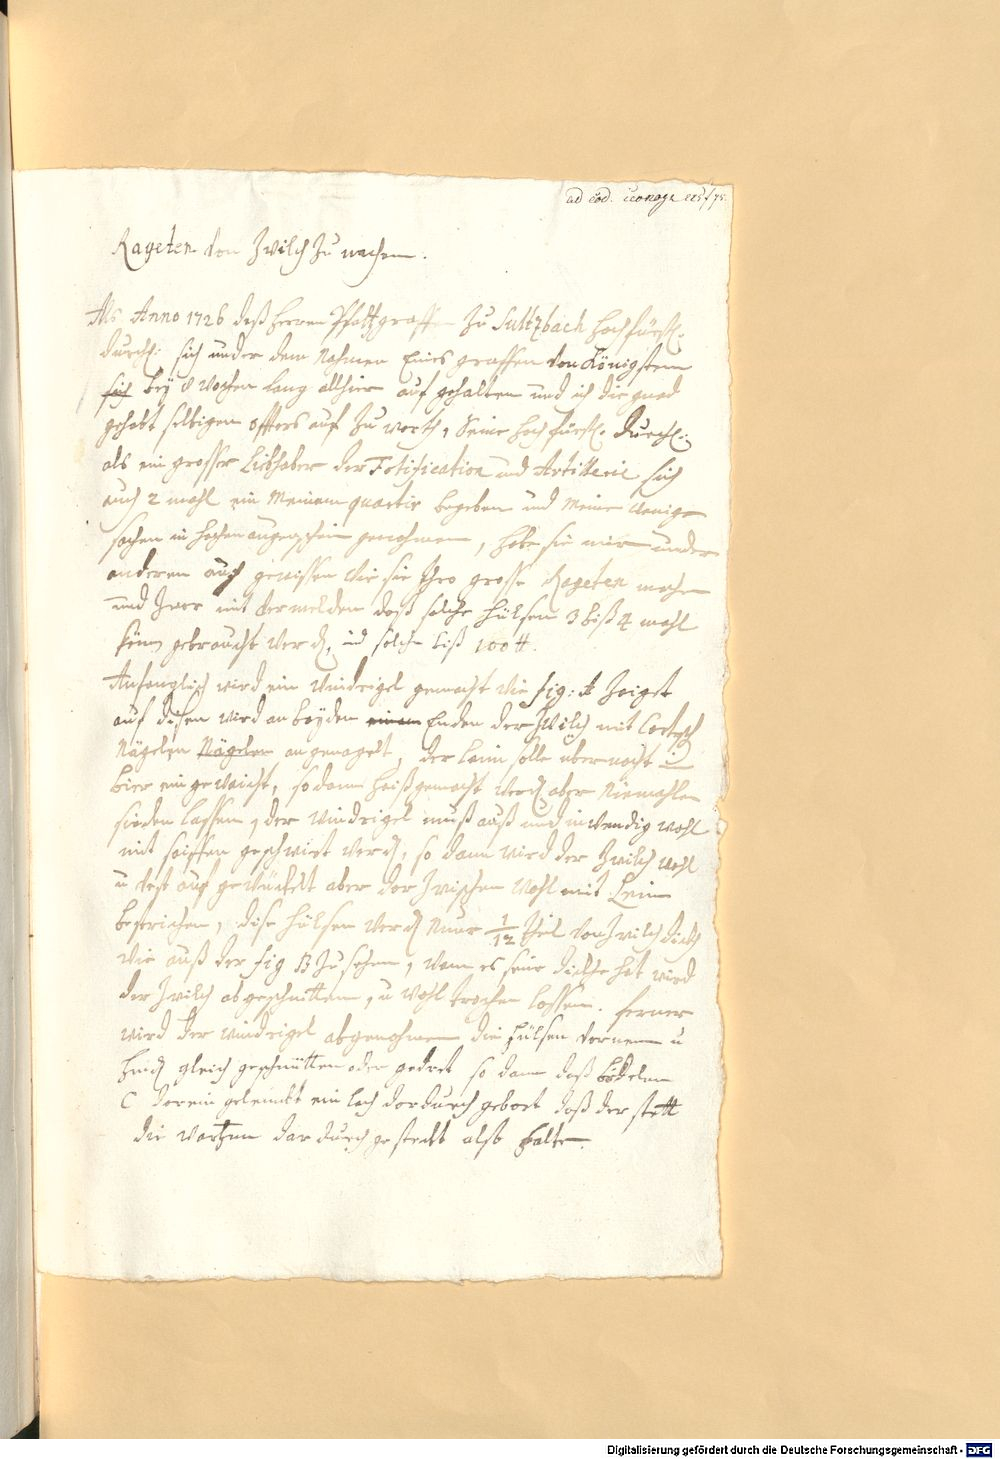 ad cod. iconogr. 225 f 75.
Rageten von Zwilch zu machen.
Als Anno 1726 deß herren Pfaltzgraffen zu Sultzbach hochfürstl:
durchl: sich under dem Nahmen Eines graffen von Königstein
sich bey 8 wochen lang allhier auf gehalten und ich die gnad
gehabt selbigen offters auf zu warth, Seine hochfürstl: durchl:
als ein grosser Liebhaber der Fotification und Artillerie sich
auch 2 mahl ein Meinem quartir begeben und Meine wenige
sachen in hochen augenschein genohmen, habe sie mir under
anderen auch gewissen wie sie Ihro grosse Rageten mache
und zwar mit vermelden daß solche hülsen 3 biß 4 mahl
könn gebraucht werd, und solche biß 100 ℔.
Anfenglich wird ein Windrigel gemacht wie fig: A Zeiget
auf disen wird an beyden einem Enden der Zwilch mit
Nägelen Nägelen angenagelt, der Leim solle ubernacht in
bier ein geweicht, so dann heiß gemacht werd aber Niemahlen
sieden lassen, der windrigel muß auß und inwendig wohl
mit saiffen geschmirt werd, so dann wird der Zwilch wohl
u vest auf gewücklet aber dar zwischen wohl mit Leim
bestrichen, dise hülsen werd Nuur 1/12 theil von Zwilch dickh
wie auß der fig B zu sehen, wann es seine dickhe hat wird
der Zwilch abgeschnitten, u wohl trochen lassen. ferner
wird der windrigel abgenohmen die hülsen vornen u
hind gleich geschnitten oder gedret so dann daß bödelein
C darein geleimbt ein loch dardurch gebort daß der stefft
die wartzen dar durch gesteckt also halte.
Digitalisierung gefördert durch die Deutsche Forschungsgemeinschaft - DFG